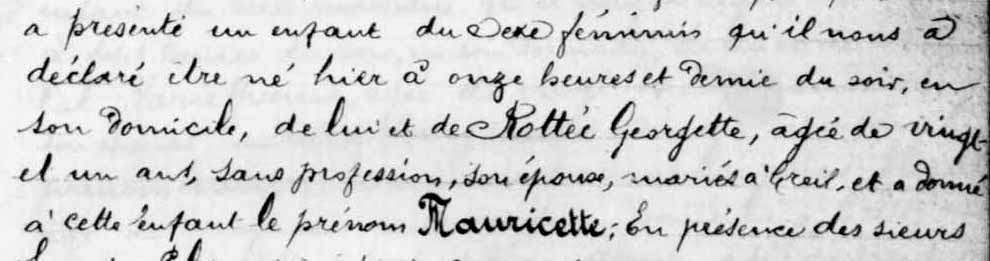 a présenté un enfant du Sexe féminin qu'il nous a
déclaré être né hier à onze heures et demie du soir, en
son domicile, de lui et de Rottée Georgette, agée de vingt-
et un ans, sans profession, son épouse, mariés à Creil, et a donné
à cette enfant le prénom Mauricette; En présence des sieurs